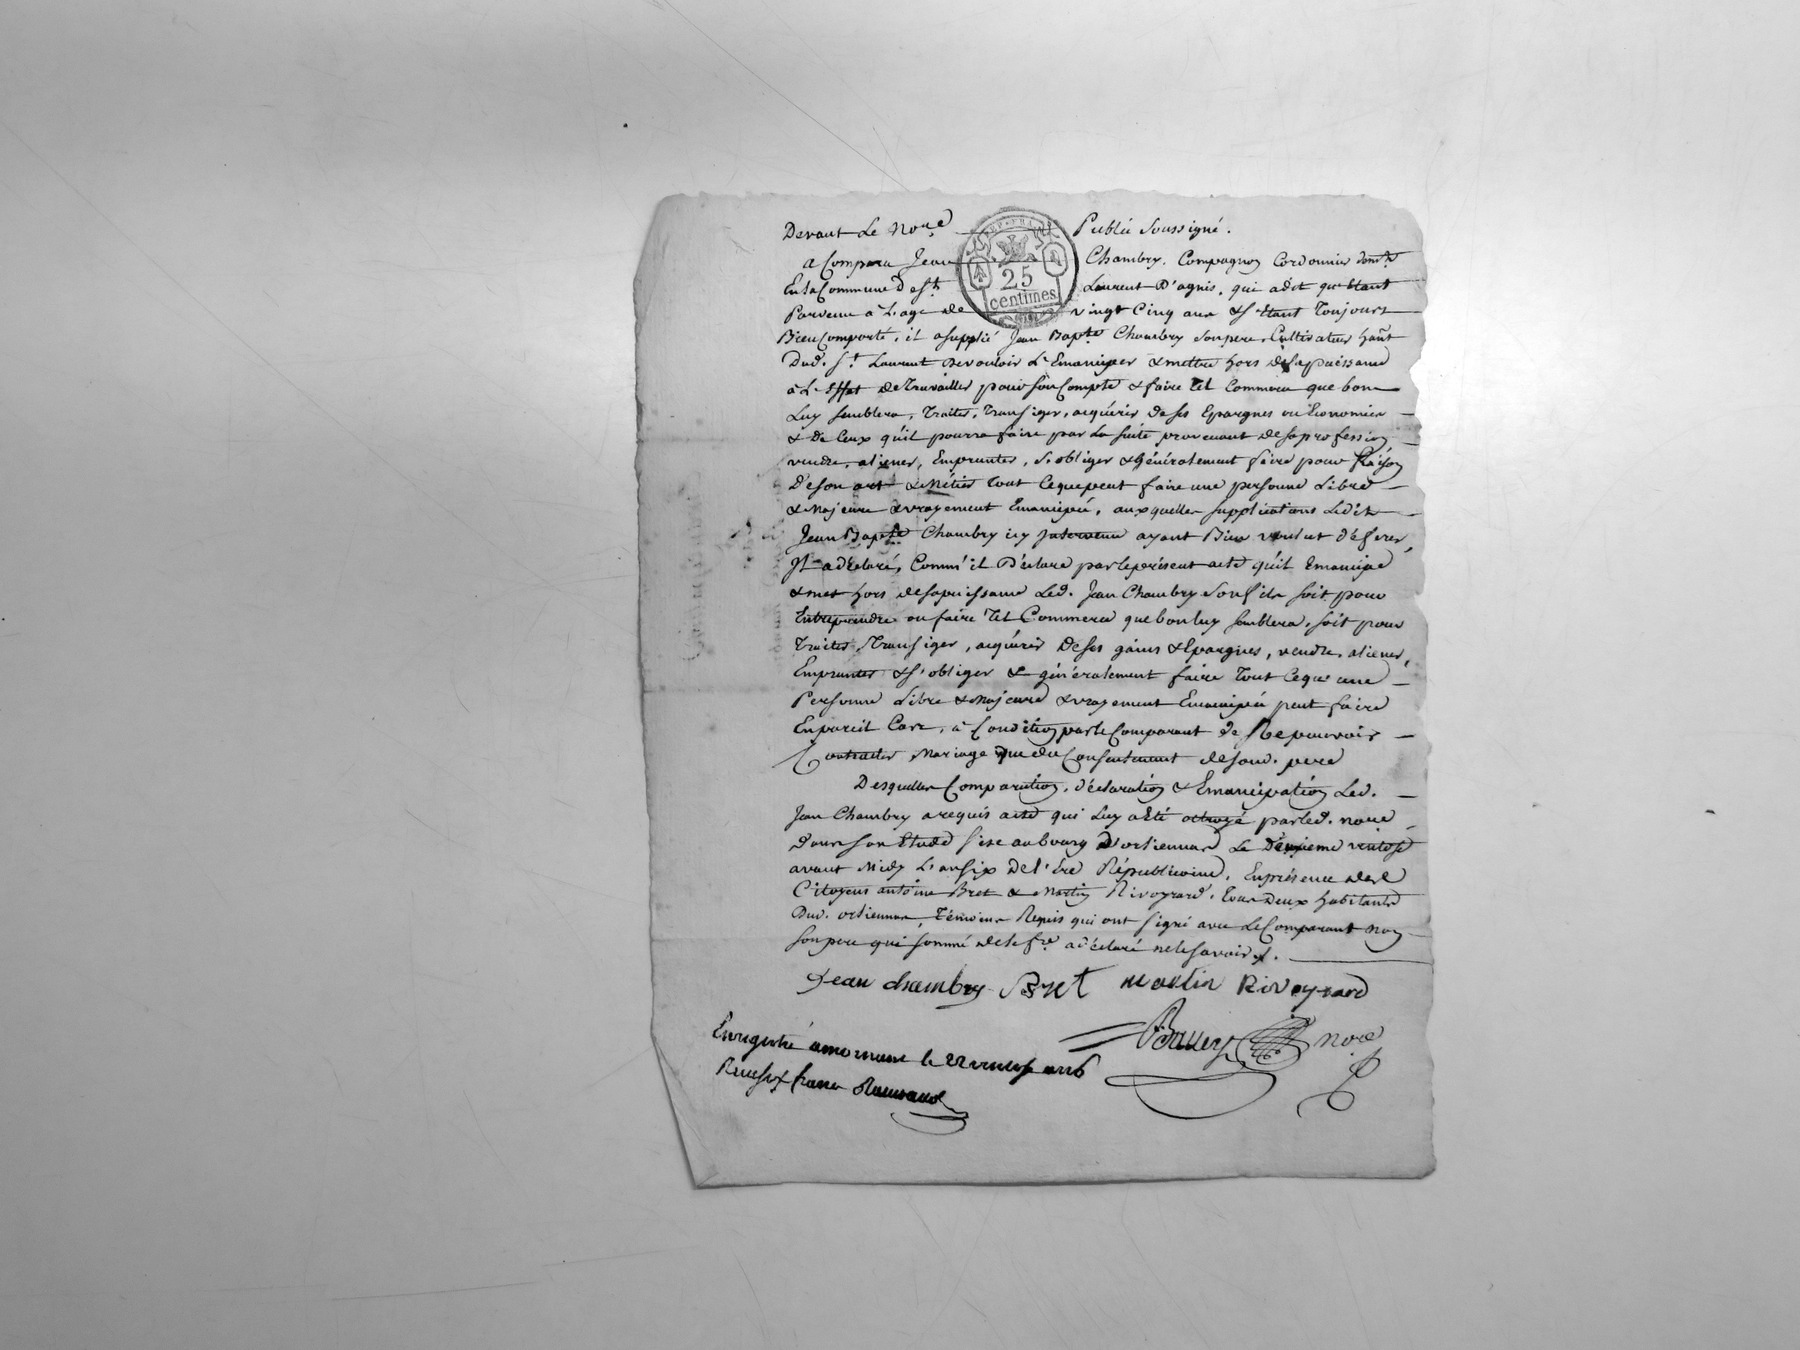 Devant Le No.re Public soussigné.
REP. FRA
25
centimes
a Comparu Jean Chambry. Compagnon Cordonnier dom.té
En la Commune de s.t Laurent D'agnis, qui a dit que Etant
Parvenu à L'age de vingt Cinq ans & s'Etant Toujours
Bien Comporté, il a supplié Jean Bapt.te Chambry son pere, Cultivateur hant
Dud. s.t Laurent De vouloir L'Emanciper & mettre hors de sa puissance
à L'effet de travailler pour son Compte & faire tel Commerce que bon
Luy semblera, Traiter, Transiger, acquérir de ses Epargnes ou Economies
& de Ceux qu'il pourra faire par La suite provenant de sa profession
vendre, aliener, Emprunter, s'obliger & Généralement faire pour Raison
De son art & Métier Tout Ce que peut faire une personne Libre
& Majeure & vrayement Emancipée, aux quelles supplications Ledit
Jean Bapte Chambry icy Intervenu ayant Bien voulut déferer,
Il a déclaré, Comm'il Déclare par le présent acte qu'il Emancipe
& met hors de sa puissance Led. Jean Chambry son fils soit pour
Entreprendre ou faire Tel Commerce que bon luy semblera, soit pour
Traiter, Transiger, acquérir de ses gains & Epargnes, vendre, aliener,
Emprunter & s'obliger & généralement faire Tout Ce qu'une
Personne Libre & Majeure & vrayement Emancipée peut faire
En pareil Cas, à Condition par le Comparant de Ne pouvoir
Contracter Mariage que du Consentement de sond. pere
Desquelles Comparution, déclaration & Emancipation Led.
Jean Chambry a requis acte qui Luy a Eté octroyé par led. no.re
dans son Etude sise au bourg d'orliennas Le Deuxieme ventose
avant Midy L'an six de l'Ere Républicaine, En présence des
Citoyens antoine Bret & Martin Rivoyrard, tous deux habitants
Dud. orliennas, Témoins Requis qui ont signé avec Le Comparant non
son pere qui sommé de le f.re a déclaré ne le savoir.
Jean chambry Bret martin Rivoyrard
no.re
Enregistré a mornant le 2 ventose an 6
Recu six francs